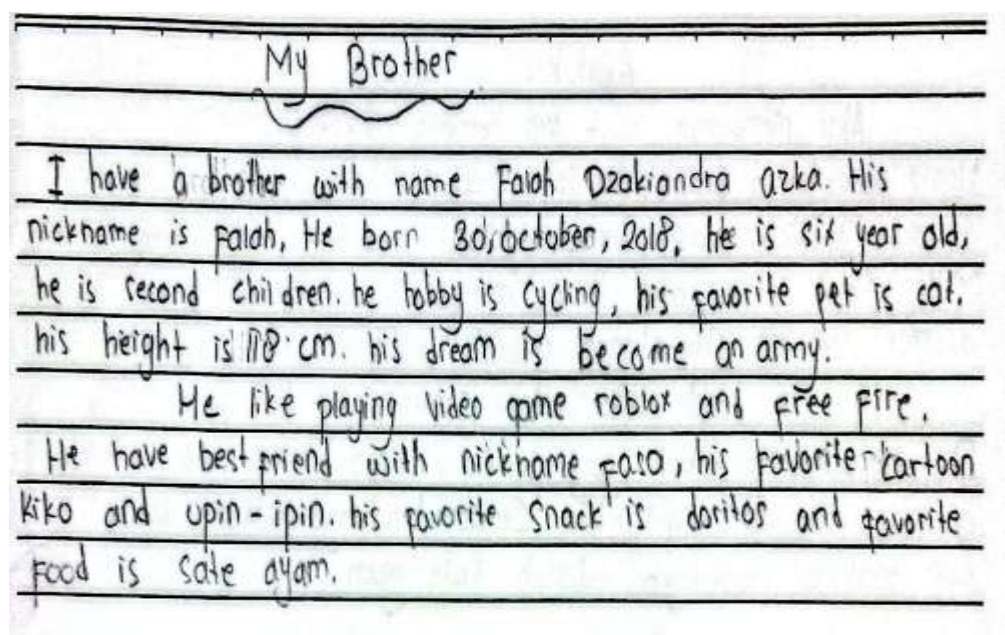 My Brother
I have a brother with name Falah Dzakiandra azka. His
nickname is Falah, He born 30, october, 2018, he is six year old,
he is second children. he hobby is cycling, his favorite pet is cat.
his height is 118 cm. his dream is become an army.
He like playing video game roblox and free fire.
He have best friend with nickname Faso, his favorite cartoon
kiko and upin-ipin. his favorite snack is doritos and favorite
food is sate ayam.